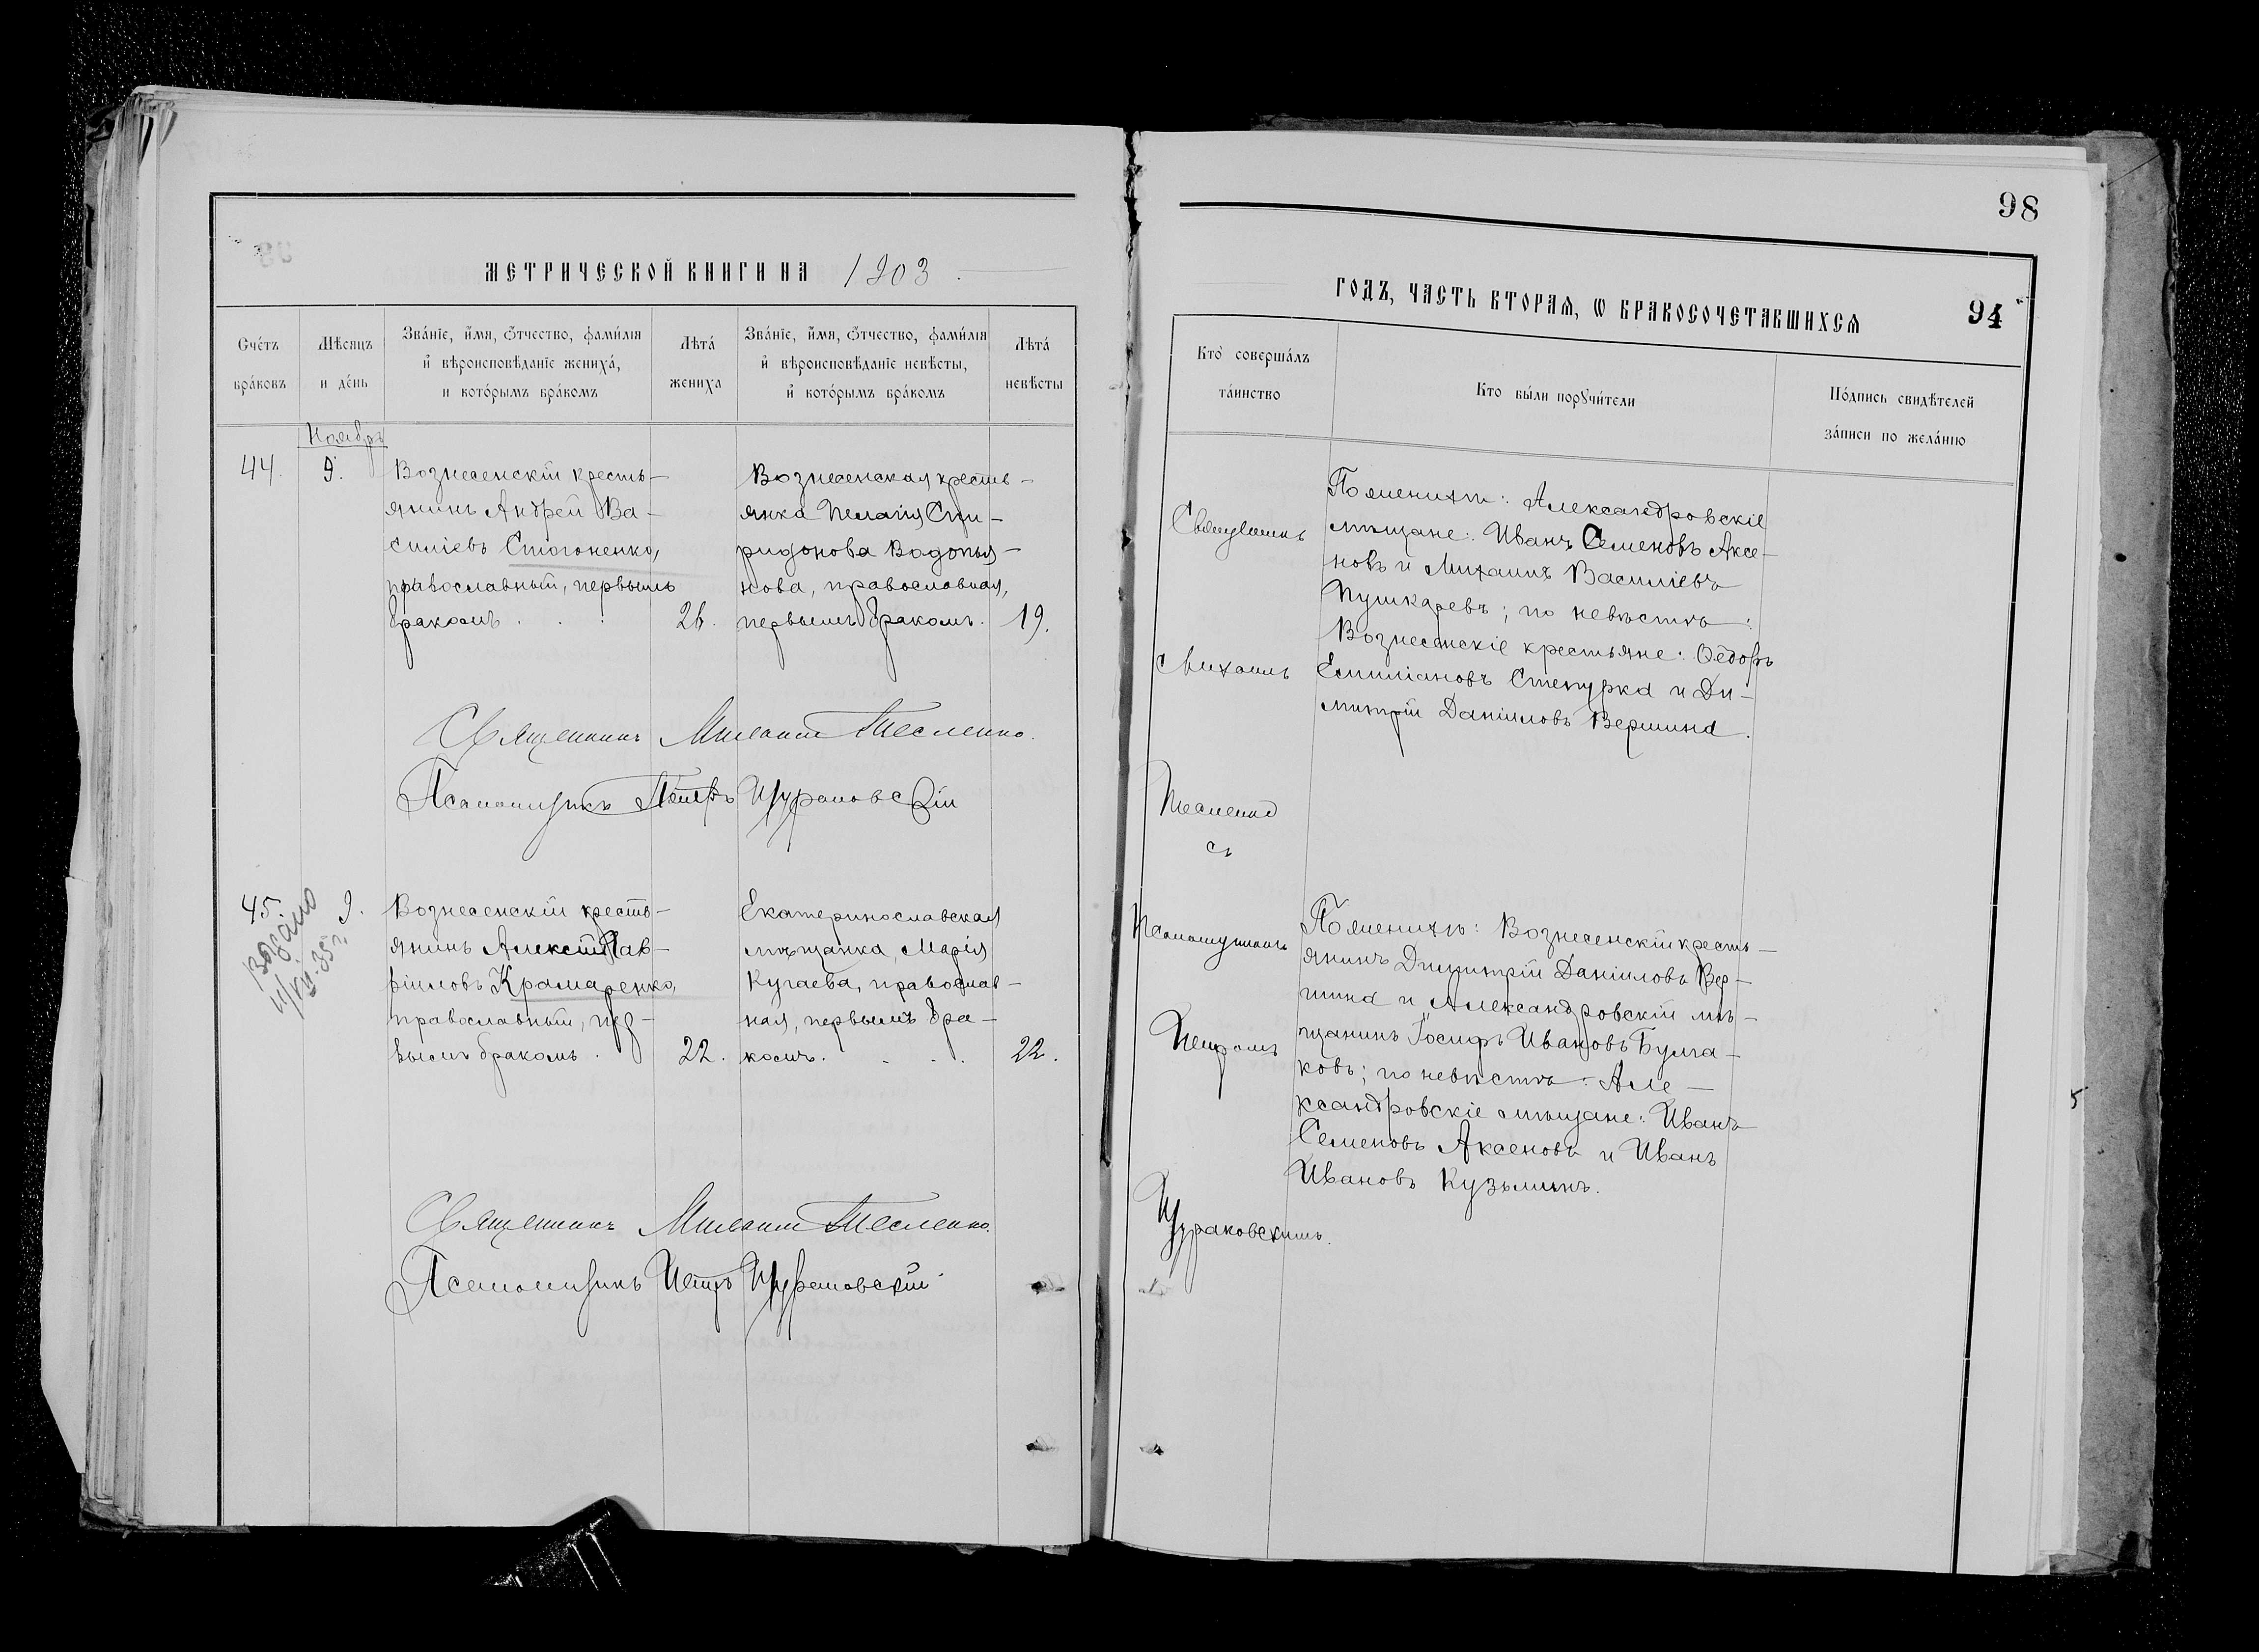 МЕТРИЧЕСКОЙ КНИГИ НА 1903
Счетъ браковъ
Мѣсяцъ и день
Званіе, имя, отчество, фамилія и вѣроисповѣданіе жениха, и которымъ бракомъ
Лѣта жениха
Званіе, имя, отчество, фамилія и вѣроисповѣданіе невѣсты, и которымъ бракомъ
Лѣта невѣсты
Ноябрь
44.
9.
Вознесенскій кресть-
янинъ Андрей Ва-
силіевъ Стогоненко,
православный, первымъ
бракомъ . . .
26.
Вознесенская кресть-
янка Пелагія Спи-
ридонова Водопья-
нова, православная,
первымъ бракомъ.
19.
Священникъ Тесленко.
Псаломщикъ Петръ
45.
9.
видано
Вознесенскій кресть-
янинъ Алексій Гав-
ріиловъ Крамаренко,
православный, пер-
вымъ бракомъ .
22.
Екатеринославская
мѣщанка, Марія
Кугаева, православ-
ная, первымъ бра-
комъ. . . .
22.
Священникъ Тесленко.
Псаломщикъ Петръ
98
ГОДЪ, ЧАСТЬ ВТОРАЯ, Ѡ БРАКОСОЧЕТАВШИХСЯ
94
Кто совершалъ таинство
Кто были порꙋчители
Подпись свидѣтелей записи по желанію
Священникъ
Михаилъ
Тесленко
съ
Псаломщикомъ
Петромъ
По женихѣ: Александровскіе
мѣщане: Иванъ Семеновъ Аксе-
новъ и Михаилъ Василіевъ
Пушкаревъ; по невѣстѣ:
Вознесенскіе крестьяне: Ѳедоръ
Емиліановъ Степурка и Ди-
митрій Даніиловъ Вершина.
По женихѣ: Вознесенскій кресть-
янинъ Димитрій Даніиловъ Вер-
шина и Александровскій мѣ-
щанинъ Іосифъ Ивановъ Булга-
ковъ; по невѣстѣ: Але-
ксандровскіе мѣщане: Иванъ
Семеновъ Аксеновъ и Иванъ
Ивановъ Кузьминъ.